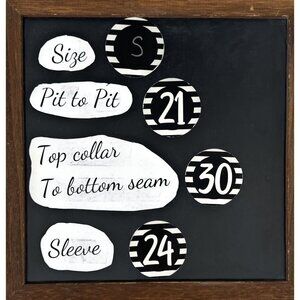 Size S
Pit to Pit 21
Top collar
To bottom seam 30
Sleeve 24